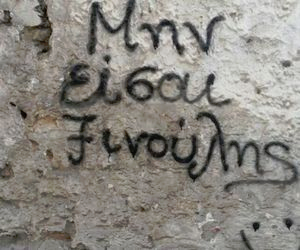 Μην
είσαι
ξινούλης